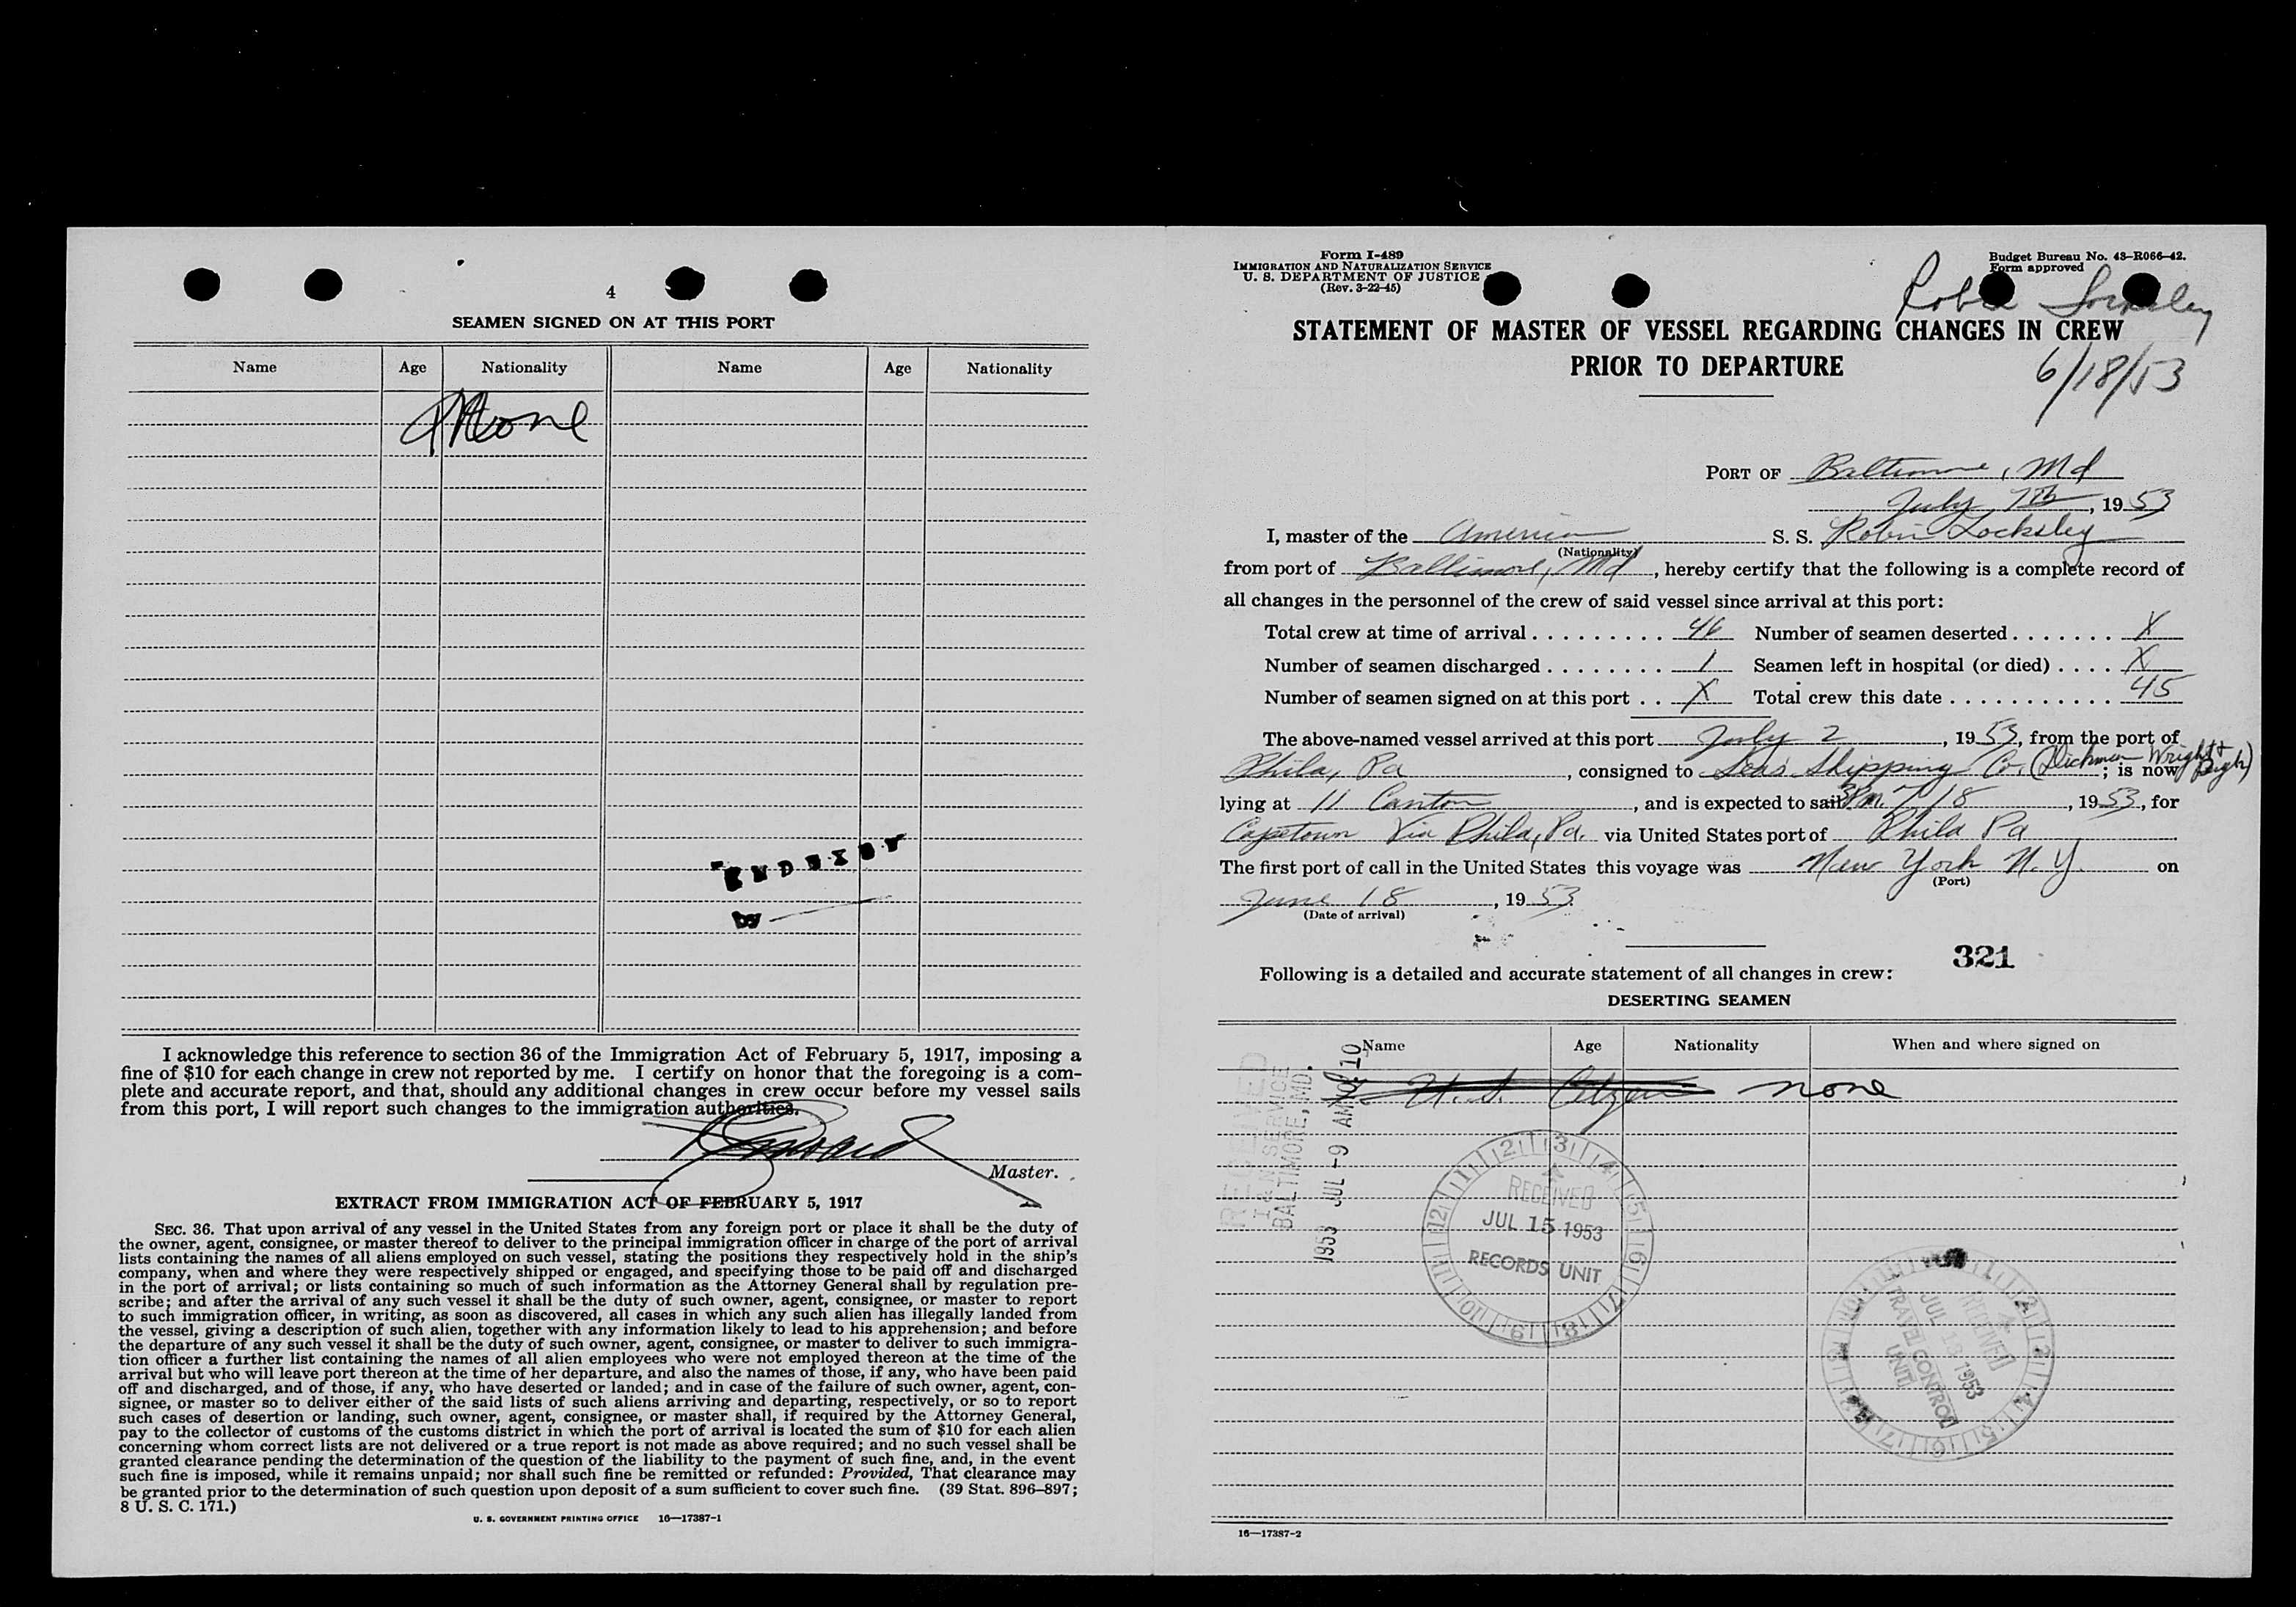 4
SEAMEN SIGNED ON AT THIS PORT
Name Age Nationality Name Age Nationality
None
INDEXED
by
I acknowledge this reference to section 36 of the Immigration Act of February 5, 1917, imposing a
fine of $10 for each change in crew not reported by me. I certify on honor that the foregoing is a com-
plete and accurate report, and that, should any additional changes in crew occur before my vessel sails
from this port, I will report such changes to the immigration authorities.
Master.
EXTRACT FROM IMMIGRATION ACT OF FEBRUARY 5, 1917
SEC. 36. That upon arrival of any vessel in the United States from any foreign port or place it shall be the duty of
the owner, agent, consignee, or master thereof to deliver to the principal immigration officer in charge of the port of arrival
lists containing the names of all aliens employed on such vessel, stating the positions they respectively hold in the ship's
company, when and where they were respectively shipped or engaged, and specifying those to be paid off and discharged
in the port of arrival; or lists containing so much of such information as the Attorney General shall by regulation pre-
scribe; and after the arrival of any such vessel it shall be the duty of such owner, agent, consignee, or master to report
to such immigration officer, in writing, as soon as discovered, all cases in which any such alien has illegally landed from
the vessel, giving a description of such alien, together with any information likely to lead to his apprehension; and before
the departure of any such vessel it shall be the duty of such owner, agent, consignee, or master to deliver to such immigra-
tion officer a further list containing the names of all alien employees who were not employed thereon at the time of the
arrival but who will leave port thereon at the time of her departure, and also the names of those, if any, who have been paid
off and discharged, and of those, if any, who have deserted or landed; and in case of the failure of such owner, agent, con-
signee, or master so to deliver either of the said lists of such aliens arriving and departing, respectively, or so to report
such cases of desertion or landing, such owner, agent, consignee, or master shall, if required by the Attorney General,
pay to the collector of customs of the customs district in which the port of arrival is located the sum of $10 for each alien
concerning whom correct lists are not delivered or a true report is not made as above required; and no such vessel shall be
granted clearance pending the determination of the question of the liability to the payment of such fine, and, in the event
such fine is imposed, while it remains unpaid; nor shall such fine be remitted or refunded: Provided, That clearance may
be granted prior to the determination of such question upon deposit of a sum sufficient to cover such fine. (39 Stat. 896–897;
8 U. S. C. 171.)
U. S. GOVERNMENT PRINTING OFFICE 16—17387-1
Form I-489
IMMIGRATION AND NATURALIZATION SERVICE
U. S. DEPARTMENT OF JUSTICE
(Rev. 3-22-45)
Budget Bureau No. 43-R066-42.
Form approved
Robin Locksley
STATEMENT OF MASTER OF VESSEL REGARDING CHANGES IN CREW
PRIOR TO DEPARTURE
6/18/53
PORT OF Baltimore, Md
July 7th, 1953
I, master of the American S. S. Robin Locksley
(Nationality)
from port of Baltimore, Md, hereby certify that the following is a complete record of
all changes in the personnel of the crew of said vessel since arrival at this port:
Total crew at time of arrival . . . . . . . . . 46 Number of seamen deserted . . . . . . . X
Number of seamen discharged . . . . . . . . 1 Seamen left in hospital (or died) . . . . X
Number of seamen signed on at this port . . X Total crew this date . . . . . . . . . . . 45
The above-named vessel arrived at this port July 2, 1953, from the port of
Phila, Pa, consigned to Seas Shipping Co. (Dichman Wright & Pugh); is now
lying at 11 Canton, and is expected to sail 3 P.m. 7/8, 1953, for
Capetown Via Phila, Pa. via United States port of Phila Pa
The first port of call in the United States this voyage was New York N.Y. on
(Port)
June 18, 1953.
(Date of arrival)
321
Following is a detailed and accurate statement of all changes in crew:
DESERTING SEAMEN
Name Age Nationality When and where signed on
U.S. none
RECEIVED
I & N SERVICE
BALTIMORE, MD.
1953 JUL -9 AM 10
RECEIVED
JUL 15 1953
RECORDS UNIT
RECEIVED
JUL 13 1953
TRAVEL CONTROL
UNIT
16—17387-2